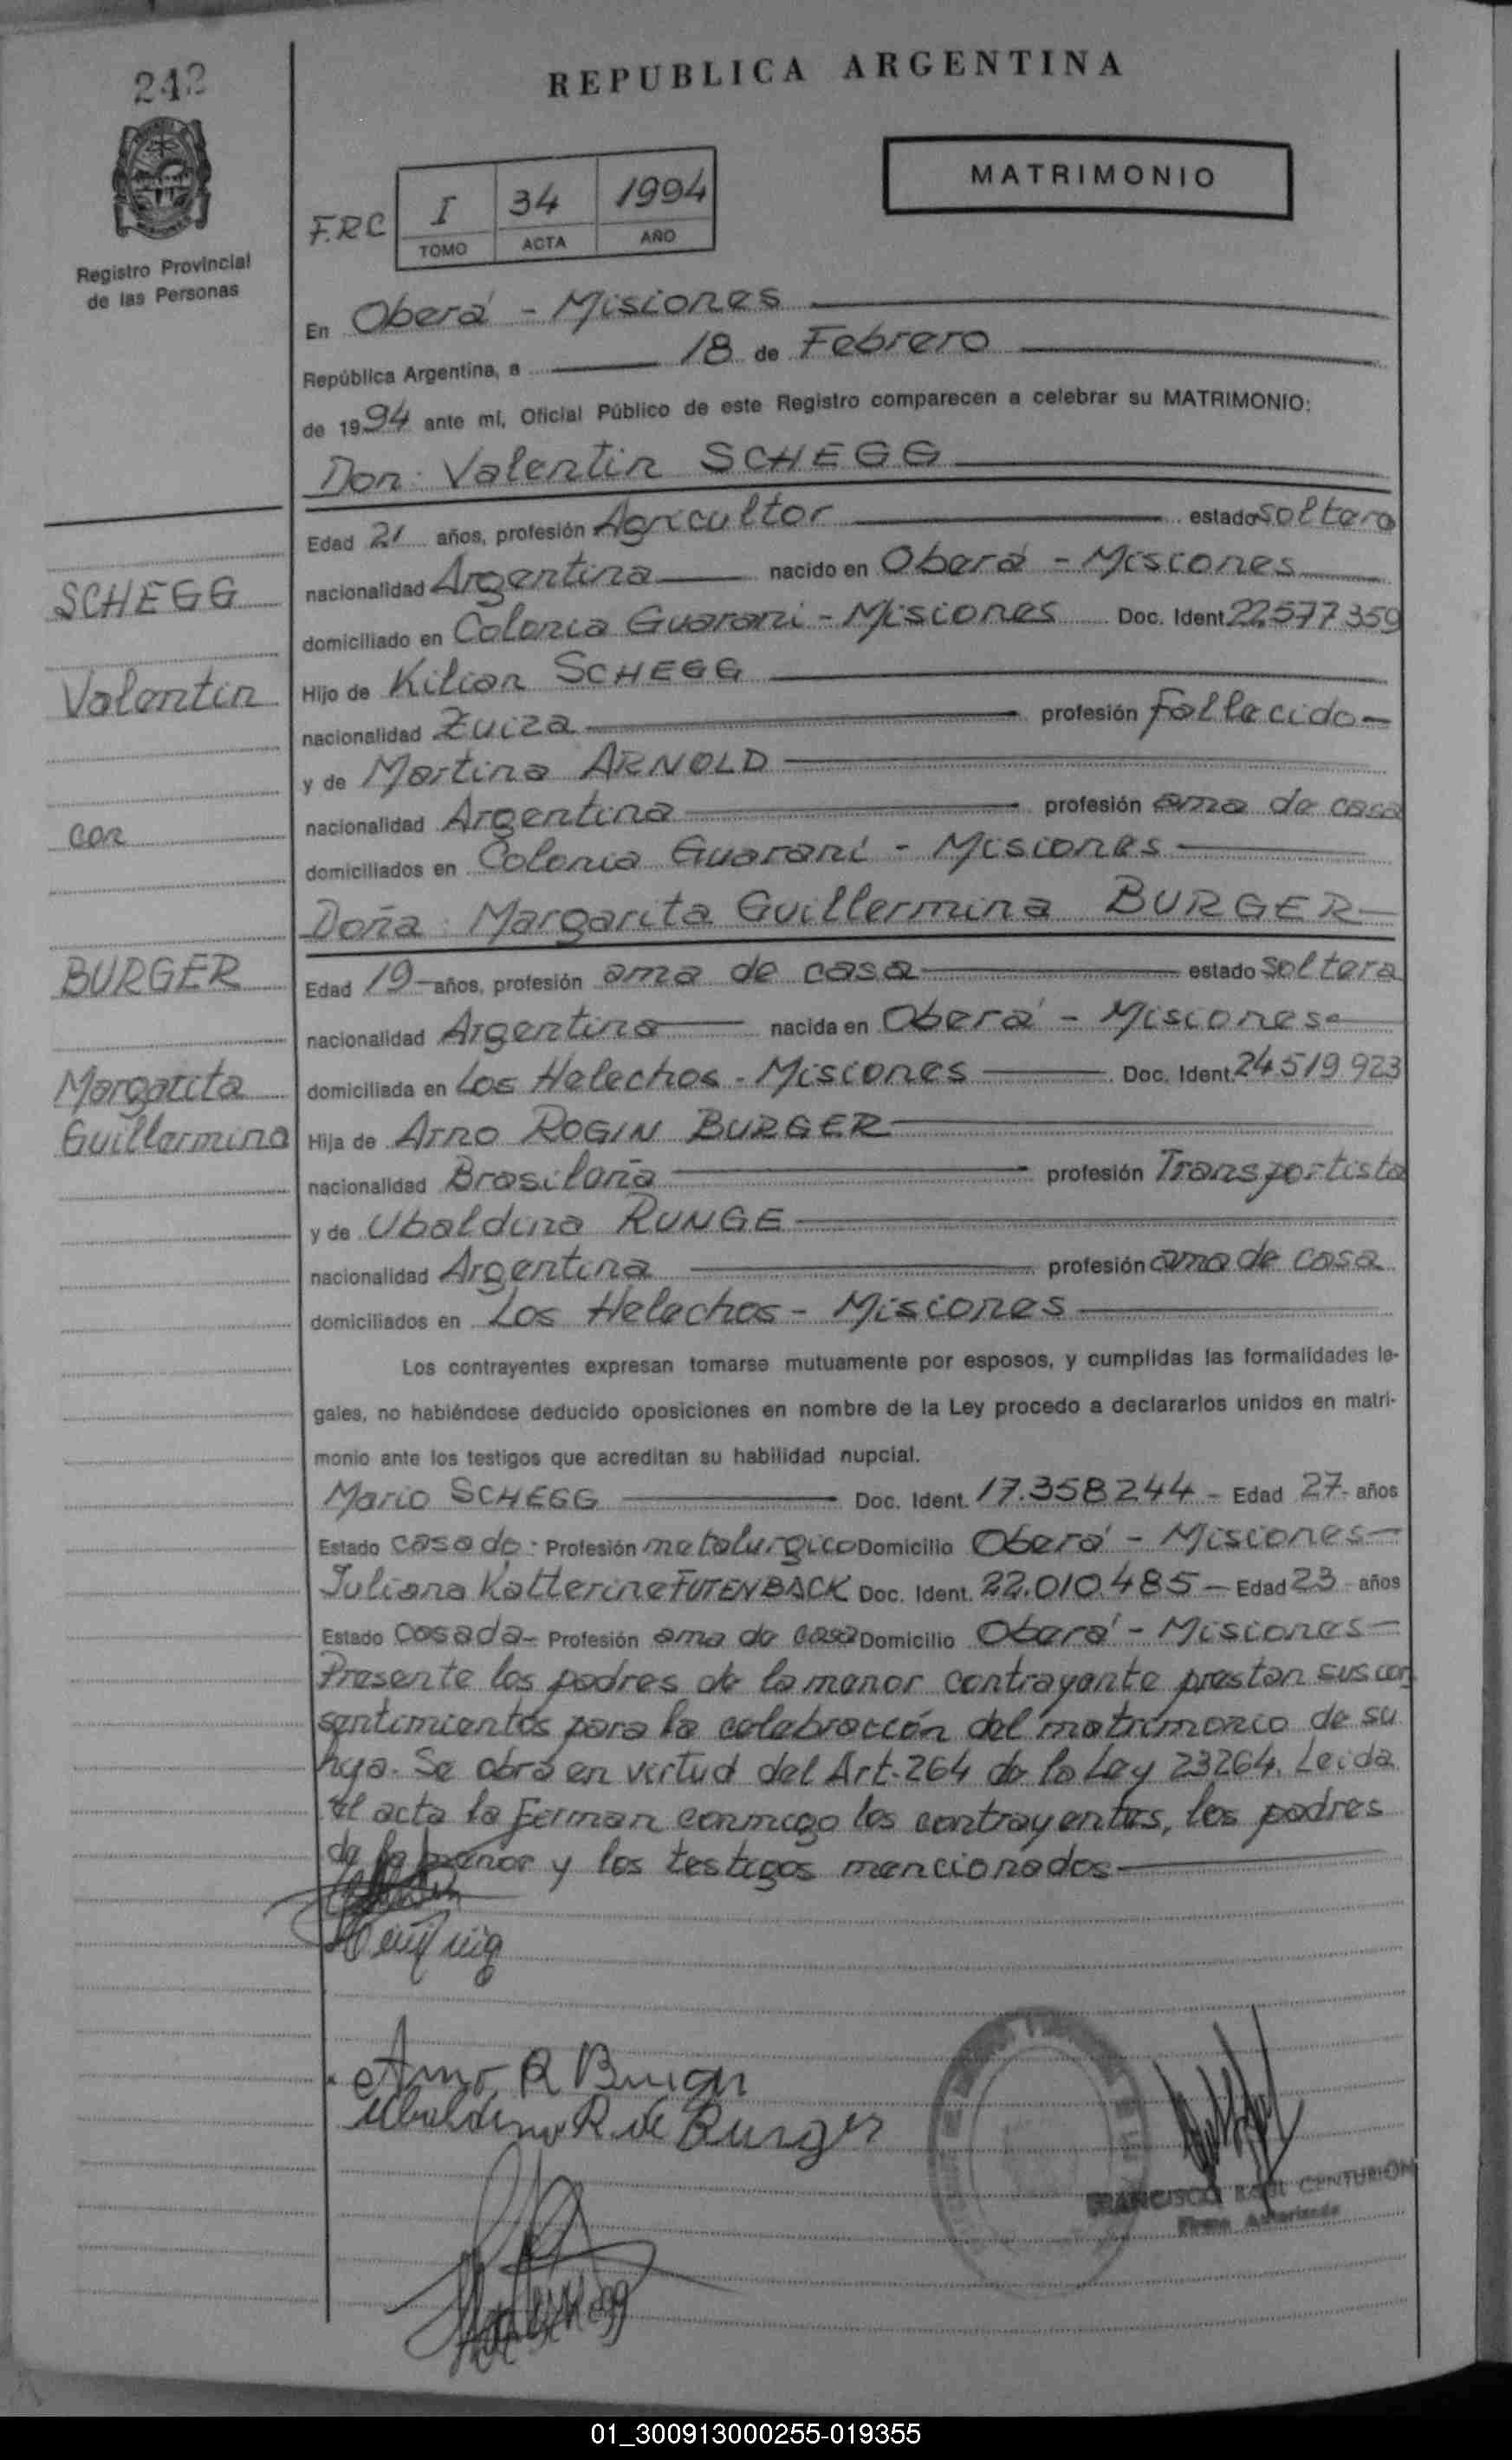 242
REPUBLICA ARGENTINA
MATRIMONIO
F.RC
I 34 1994
TOMO ACTA AÑO
Registro Provincial
de las Personas
En Oberá - Misiones
República Argentina, a 18 de Febrero
de 1994 ante mí, Oficial Público de este Registro comparecen a celebrar su MATRIMONIO:
Don: Valentin SCHEGG
Edad 21 años, profesión Agricultor estado soltero
nacionalidad Argentina nacido en Oberá - Misiones
SCHEGG
domiciliado en Colonia Guarani - Misiones Doc. Ident. 22.577.359
Valentin
Hijo de Kilian SCHEGG
nacionalidad Zuiza profesión fallecido
y de Martina ARNOLD
con
nacionalidad Argentina profesión ama de casa
domiciliados en Colonia Guarani - Misiones
Doña: Margarita Guillermina BURGER
BURGER
Edad 19 años, profesión ama de casa estado soltera
nacionalidad Argentina nacida en Oberá - Misiones
Margarita
domiciliada en Los Helechos - Misiones Doc. Ident. 24.519.923
Guillermina
Hija de Arno ROGIN BURGER
nacionalidad Brasileña profesión Transportista
y de Ubaldina RUNGE
nacionalidad Argentina profesión ama de casa
domiciliados en Los Helechos - Misiones
Los contrayentes expresan tomarse mutuamente por esposos, y cumplidas las formalidades le-
gales, no habiéndose deducido oposiciones en nombre de la Ley procedo a declararlos unidos en matri-
monio ante los testigos que acreditan su habilidad nupcial.
Mario SCHEGG Doc. Ident. 17.358.244 - Edad 27 - años
Estado casado - Profesión metalurgico Domicilio Oberá - Misiones -
Juliana Katterine FUTENBACK Doc. Ident. 22.010.485 - Edad 23 - años
Estado Casada - Profesión ama de casa Domicilio Oberá - Misiones -
Presente los padres de la menor contrayente prestan sus con
sentimientos para la celebracción del matrimonio de su
hija. Se obra en virtud del Art. 264 de la Ley 23264. Leida
el acta la ferman conmigo los contrayentes, los padres
de la menor y los testigos mencionados
Arno R Burger
Ubaldina R de Burger
FRANCISCO RAUL CENTURION
Firma Autorizada
01_300913000255-019355